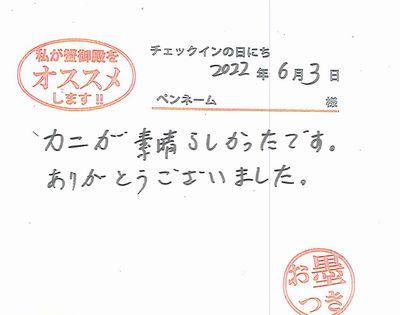 私が蟹御殿を
オススメ
します!!
チェックインの日にち
2022年6月3日
ペンネーム 様
カニが素晴らしかったです。
ありがとうございました。
お墨
つき